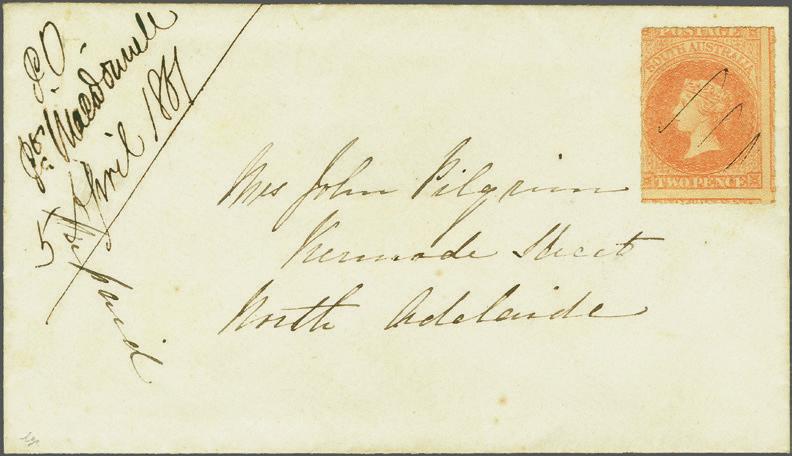 P.O
Macdonnell
5 April 1861
paid
POSTAGE
SOUTH AUSTRALIA
TWO PENCE
Mrs John Pilgrim
Kermode Street
North Adelaide